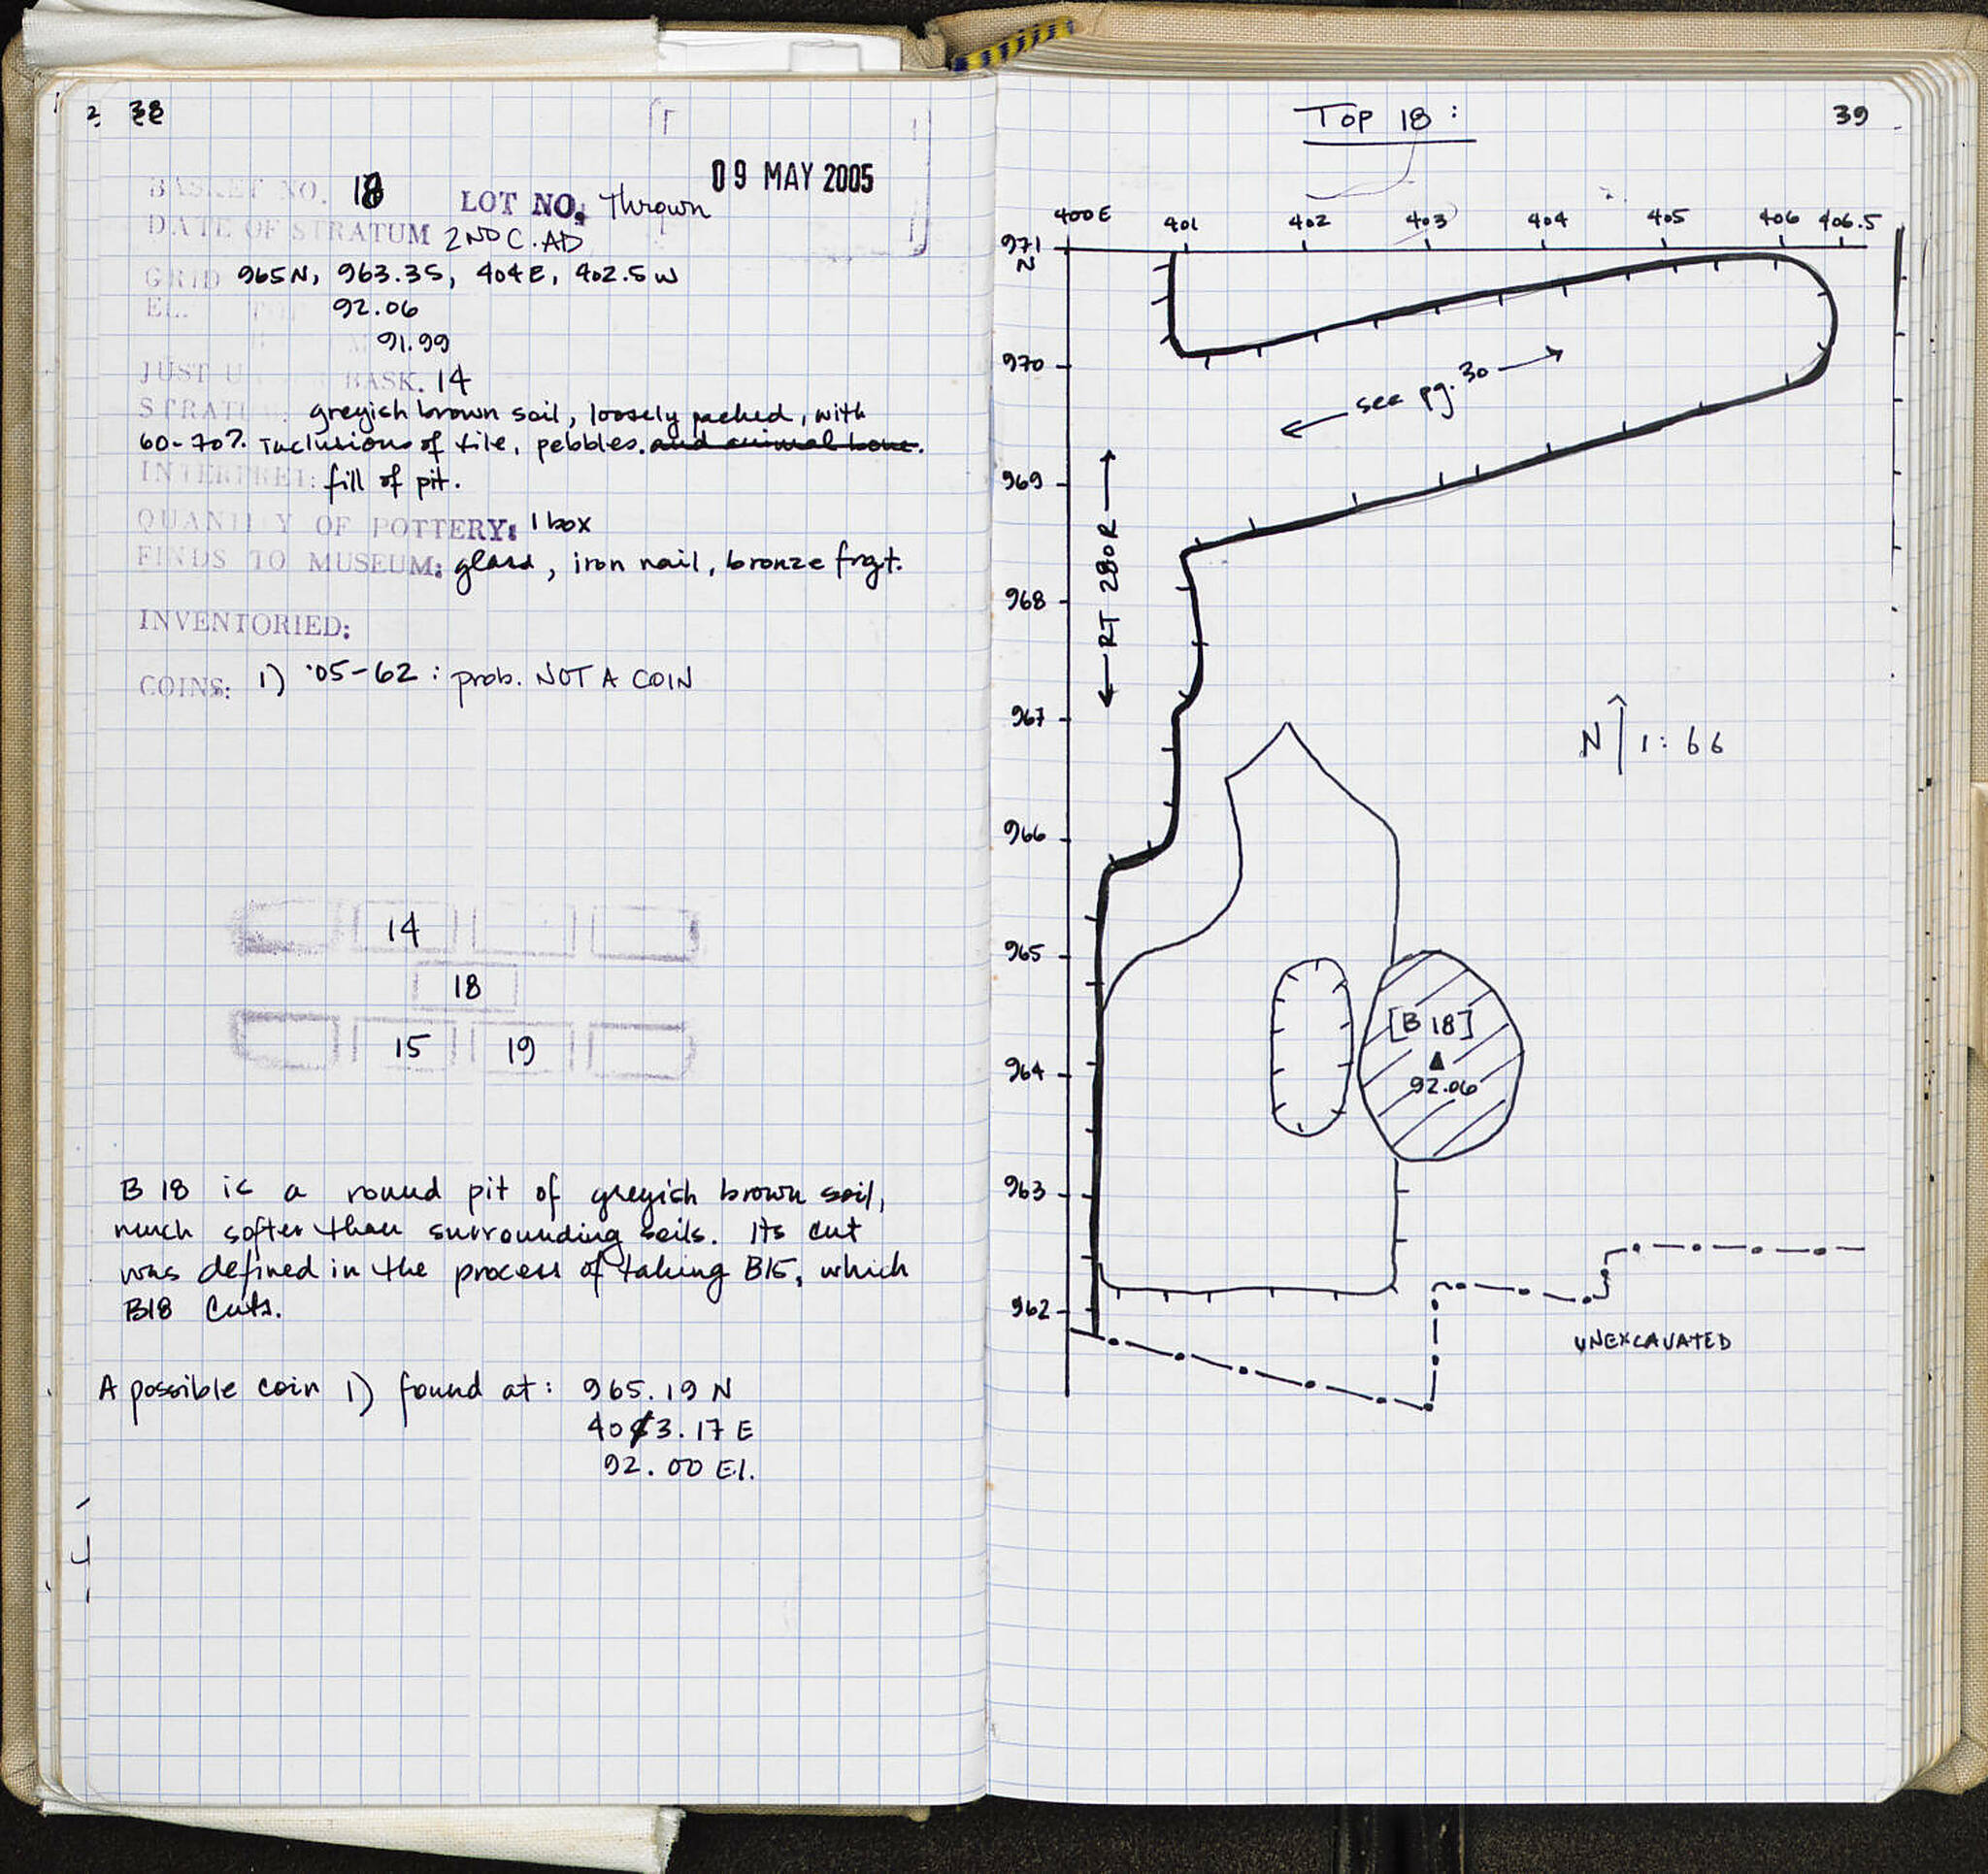 38
09 MAY 2005
BASKET NO. 18 LOT NO. Thrown
DATE OF STRATUM 2ND C. AD
GRID 965N, 963.3S, 404E, 402.5W
EL. 92.06
91.99
BASK. 14
greyish brown soil, loosely packed, with
60-70% Inclusions of tile, pebbles. and animal bone.
INTERPRET: fill of pit.
QUANTITY OF POTTERY: 1 box
FINDS TO MUSEUM: glass, iron nail, bronze frgt.
INVENTORIED:
COINS: 1) '05-62 : prob. NOT A COIN
14
18
15 19
B 18 is a round pit of greyish brown soil,
much softer than surrounding soils. Its cut
was defined in the process of taking B15, which
B18 cuts.
A possible coin 1) found at: 965.19 N
403.17 E
92.00 El.
Top 18 :
39
400E 401 402 403 404 405 406 406.5
971
N
970
see pg. 30
969
RT 280R
968
967
N 1:66
966
965
[B 18]
964
92.06
963
962
UNEXCAVATED